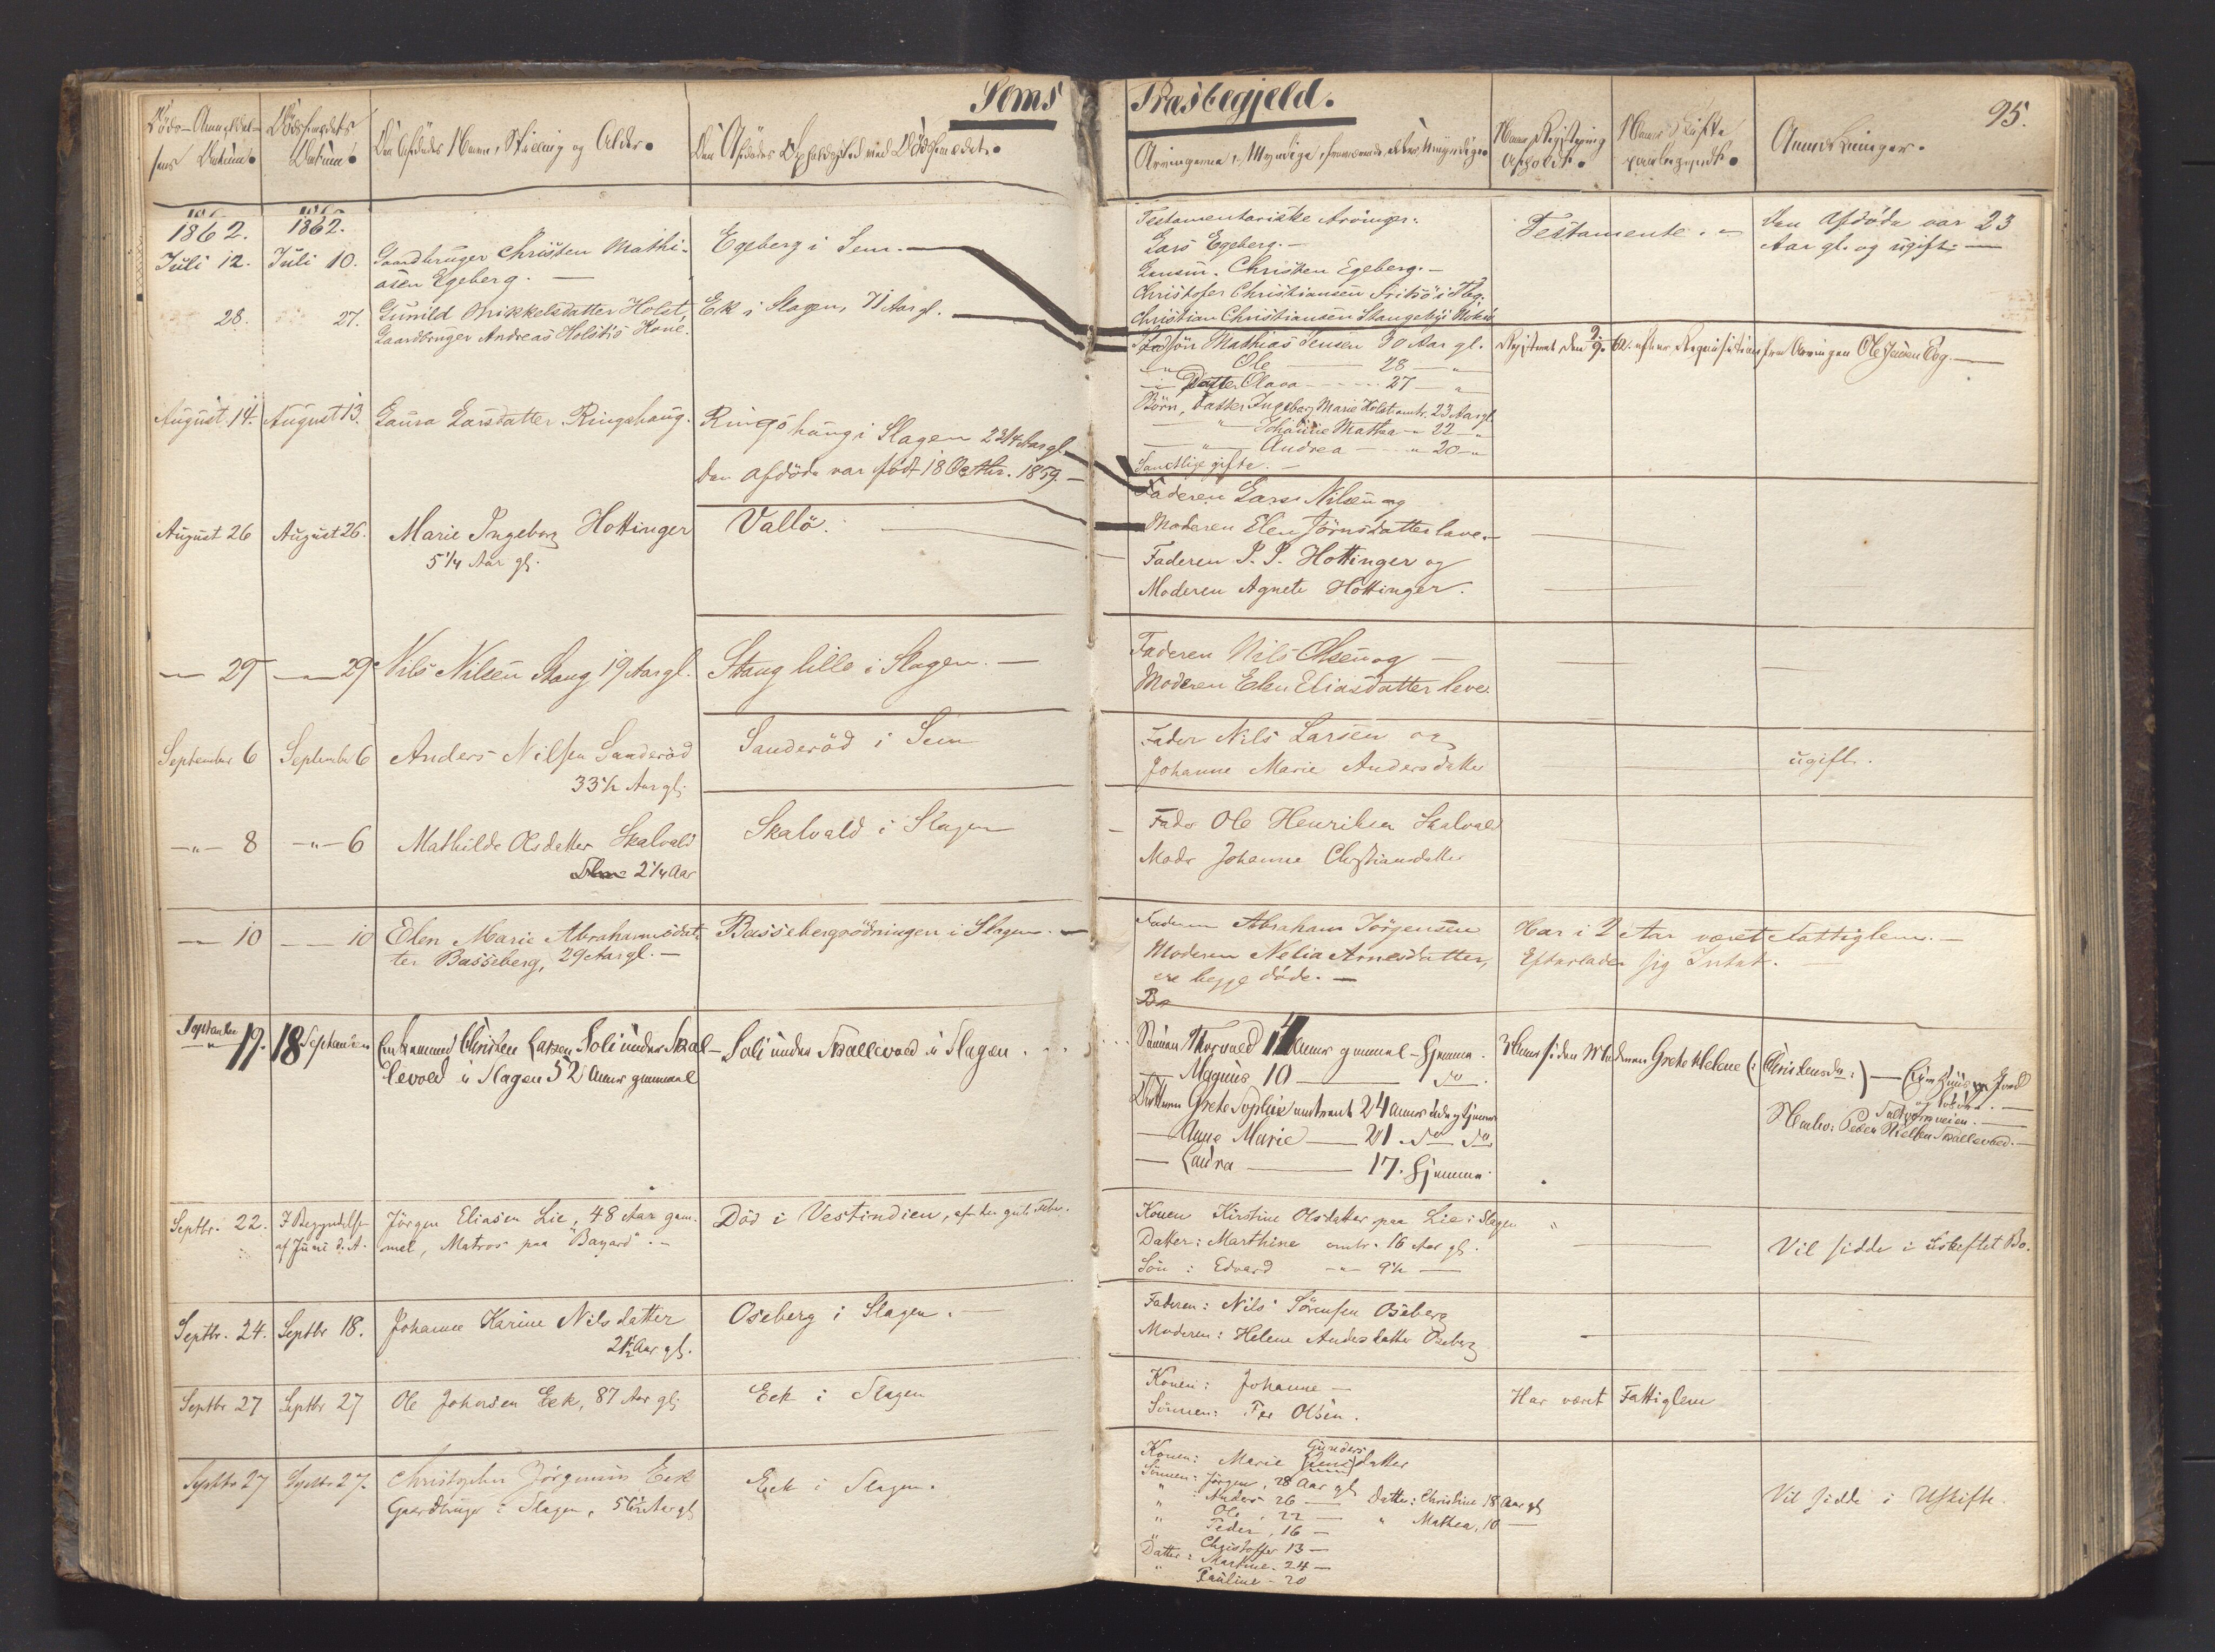 Sems Præstegjeld.
95.
Döds-Anmeldel-
sens Datum.
Dödsfaldets
Datum.
Den Afdödes Navn, Stilling og Alder.
Den Afdödes Opholdssted ved Dödsfaldet.
Arvingerne, Myndige, fraværende eller Umyndige.
Naar Registrering
afholdt.
Naar Skifte
Anmærkninger.
1862.
1862.
Juli 12.
Juli 10.
Gaardbruger Christen Mathi-
asen Egeberg.
Egeberg i Sem.
Testamentariske Arvinger:
Lars Egeberg.
Christen Egeberg.
Christofer Christiansen
Christian Christiansen Stangeby i
Testamente.
Den Afdöde var 23
Aar gl. og ugift.
28.
27.
Gunild Mikkelsdatter Holst,
Gaardbruger Andreas Holsts Kone.
Ek i Slagen, 71 Aar gl.
Mathias Jensen 30 Aar gl.
Ole 28 "
Datter Olava 27 "
Börn, Datter Ingeborg Marie Holst omtr. 23 Aar gl.
" Johanne Mathea " 22 "
" Andrea " 20 "
Samtlige gifte.
Registreret den 9/9 62 efter Requisition fra Arvingen Ole Jensen
August 14.
August 13.
Laura Larsdatter Ringshaug.
Ringshaug i Slagen 2 3/4 Aar gl.
Den Afdöde var födt 18 Octbr. 1859.
Faderen Lars Nilsen og
Moderen Elen Jörnsdatter leve.
August 26
August 26.
Marie Ingeborg Hottinger
5 1/4 Aar gl.
Vallö.
Faderen P. P. Hottinger og
Moderen Agnete Hottinger.
" 29
" 29
Nils Nilsen Stang 19 Aar gl.
Stang lille i Slagen.
Faderen Nils Olsen og
Moderen Elen Eliasdatter leve.
September 6
September 6
Anders Nilsen Sanderöd
33 1/2 Aar gl.
Sanderöd i Sem
Fader Nils Larsen og
Johanne Marie Andersdatter
ugift.
" 8
" 6
Mathilde Olsdatter Skalvald
2 1/4 Aar
Skalvald i Slagen
Fader Ole Henriksen Skalvald
Moder Johanne Christiansdatter
10
10
Elen Marie Abrahamsdat-
ter Basseberg, 29 Aar gl.
Bassebergsödningen i Slagen.
Faderen Abraham Jörgensen
Moderen Nelia Arnesdatter,
ere begge döde.
Har i 2 Aar været Fattiglem.
Efterlader sig Intet.
September
" 19.
18 September
Enkemand Christen Larsen Soli under Skal-
levold i Slagen 52 Aar gammel
Soli under Skallevold i Slagen.
Sönnen Thorvald 14 Aar gammel - hjemme.
Magnus 10 do.
Datteren Grete Sophie omtrent 24 Aar
Anne Marie 21 do do
Laura 17. hjemme.
siden Moderen Grete Helene (: Christensdr. :)
Peder Nielsen Skallevold.
Septbr. 22.
I Begyndelsen
af Juni d. A.
Jörgen Eliasen Lie, 48 Aar gam-
mel, Matros paa "Bayard".
Död i Vestindien, af den gule Feber.
Konen Kirstine Olsdatter paa Lie i Slagen
Datter: Marthine omtr. 16 Aar gl.
Sön: Edvard " 9 1/2
Vil sidde i uskiftet Bo.
Septbr. 24.
Septbr 18.
Johanne Karine Nilsdatter
2 1/2 Aar gl.
Oseberg i Slagen.
Faderen: Nils Sörensen Oseberg
Moderen: Helene Andersdatter Oseberg
Septbr 27
Septbr 27
Ole Johansen Eek, 87 Aar gl.
Eek i Slagen
Konen: Johanne
Sönnen: Per Olsen.
Har været Fattiglem
Septbr 27
Septbr 27.
Christopher Jörgensen Eek
Gaardbruger i Slagen, 51 1/2 Aar gl
Eek i Slagen.
Gunders
Konen: Marie datter
Sönnen: Jörgen, 28 Aar gl
" Anders 26 Datter: Christine 18 Aar gl
" Ole, 22 " Mathea, 10
" Peder, 16
" Christoffer 13
Datter: Martine. 24
" Pauline - 20
Vil sidde i Uskifte.